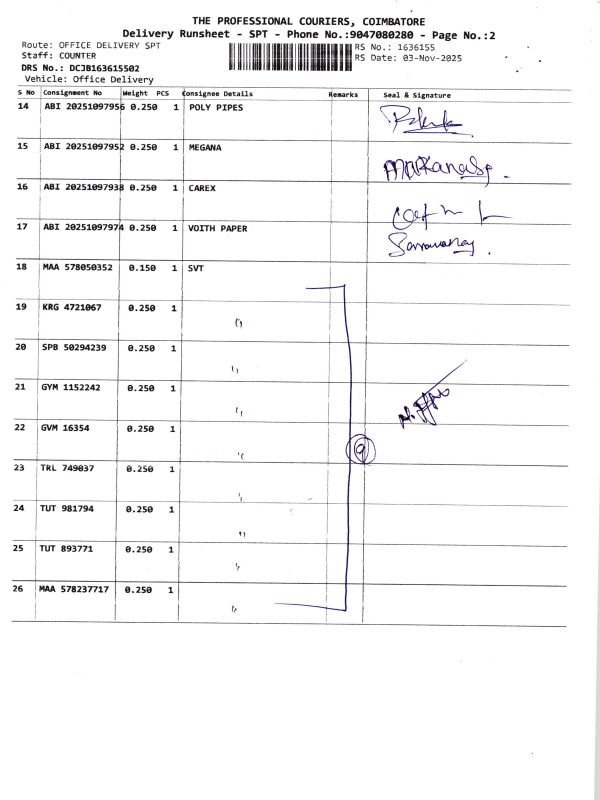 THE PROFESSIONAL COURIERS, COIMBATORE
Delivery Runsheet - SPT - Phone No.:9047080280 - Page No.:2
Route: OFFICE DELIVERY SPT RS No.: 1636155
Staff: COUNTER RS Date: 03-Nov-2025
DRS No.: DCJB163615502
Vehicle: Office Delivery
S No Consignment No Weight PCS Consignee Details Remarks Seal & Signature
14 ABI 20251097956 0.250 1 POLY PIPES
15 ABI 20251097952 0.250 1 MEGANA
16 ABI 20251097938 0.250 1 CAREX
17 ABI 20251097974 0.250 1 VOITH PAPER
18 MAA 578050352 0.150 1 SVT
19 KRG 4721067 0.250 1 "
20 SPB 50294239 0.250 1 "
21 GYM 1152242 0.250 1 "
22 GVM 16354 0.250 1 "
9
23 TRL 749037 0.250 1 "
24 TUT 981794 0.250 1 "
25 TUT 893771 0.250 1 "
26 MAA 578237717 0.250 1 "